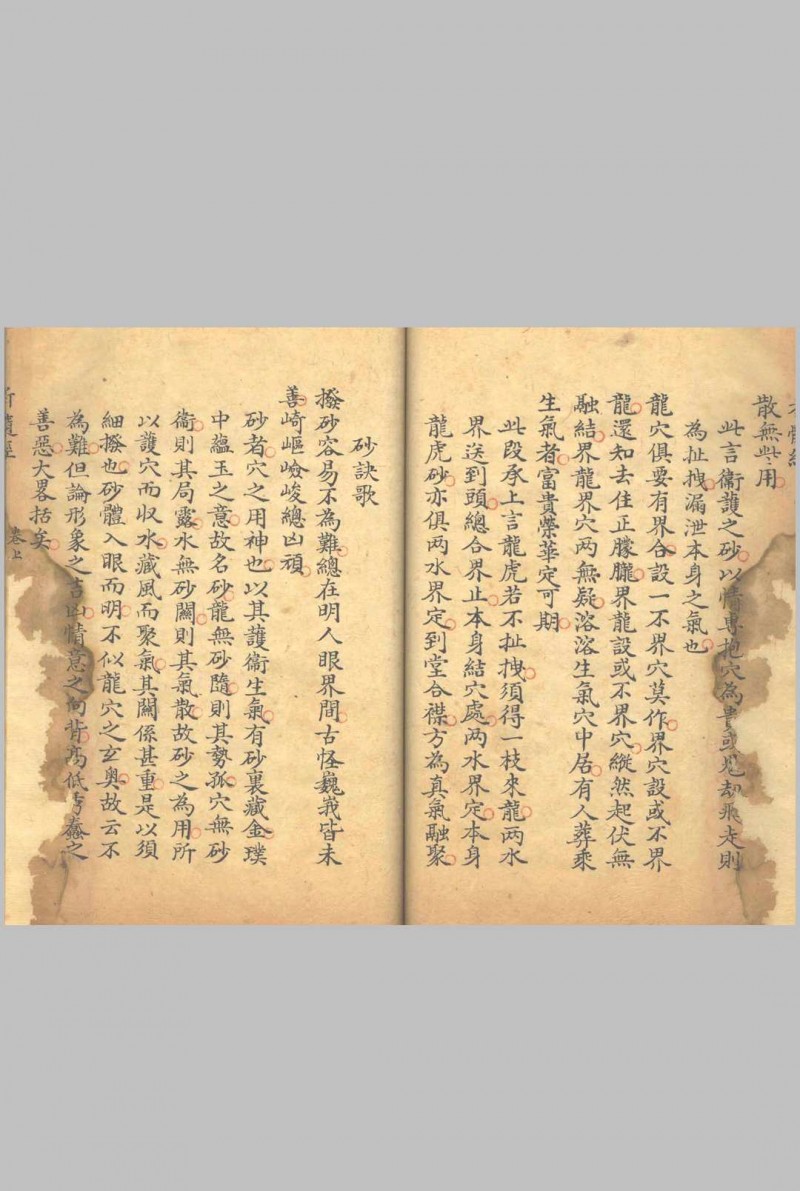 散無些用
此言衞護之砂以情專抱穴為貴或見刦飛走則
為扯拽漏泄本身之氣也
龍穴俱要有界合設一不界穴莫作界穴設或不界
龍還知去住正朦朧界龍設或不界穴縱然起伏無
融結界龍界穴两無疑溶溶生氣穴中居有人葬乘
生氣者富貴榮華定可期
此段承上言龍虎若不扯拽須得一枝來龍两水
界送到頭總合界止本身結穴處两水界定本身
龍虎砂亦俱两水界定到堂合襟方為真氣融聚
砂訣歌
撥砂容易不為難總在明人眼界間古怪巍峩皆未
善崎嶇嶮峻總凶頑
砂者穴之用神也以其護衞生氣有砂裏藏金璞
中蘊玉之意故名砂龍無砂隨則其勢孤穴無砂
衞則其局露水無砂關則其氣散故砂之為用所
以護穴而収水藏風而聚氣其關係甚重是以須
細撥也砂體入眼而明不似龍穴之玄奥故云不
為難但論形象之吉凶情意之向背高低夸蠢之
善惡大畧括矣
卷上